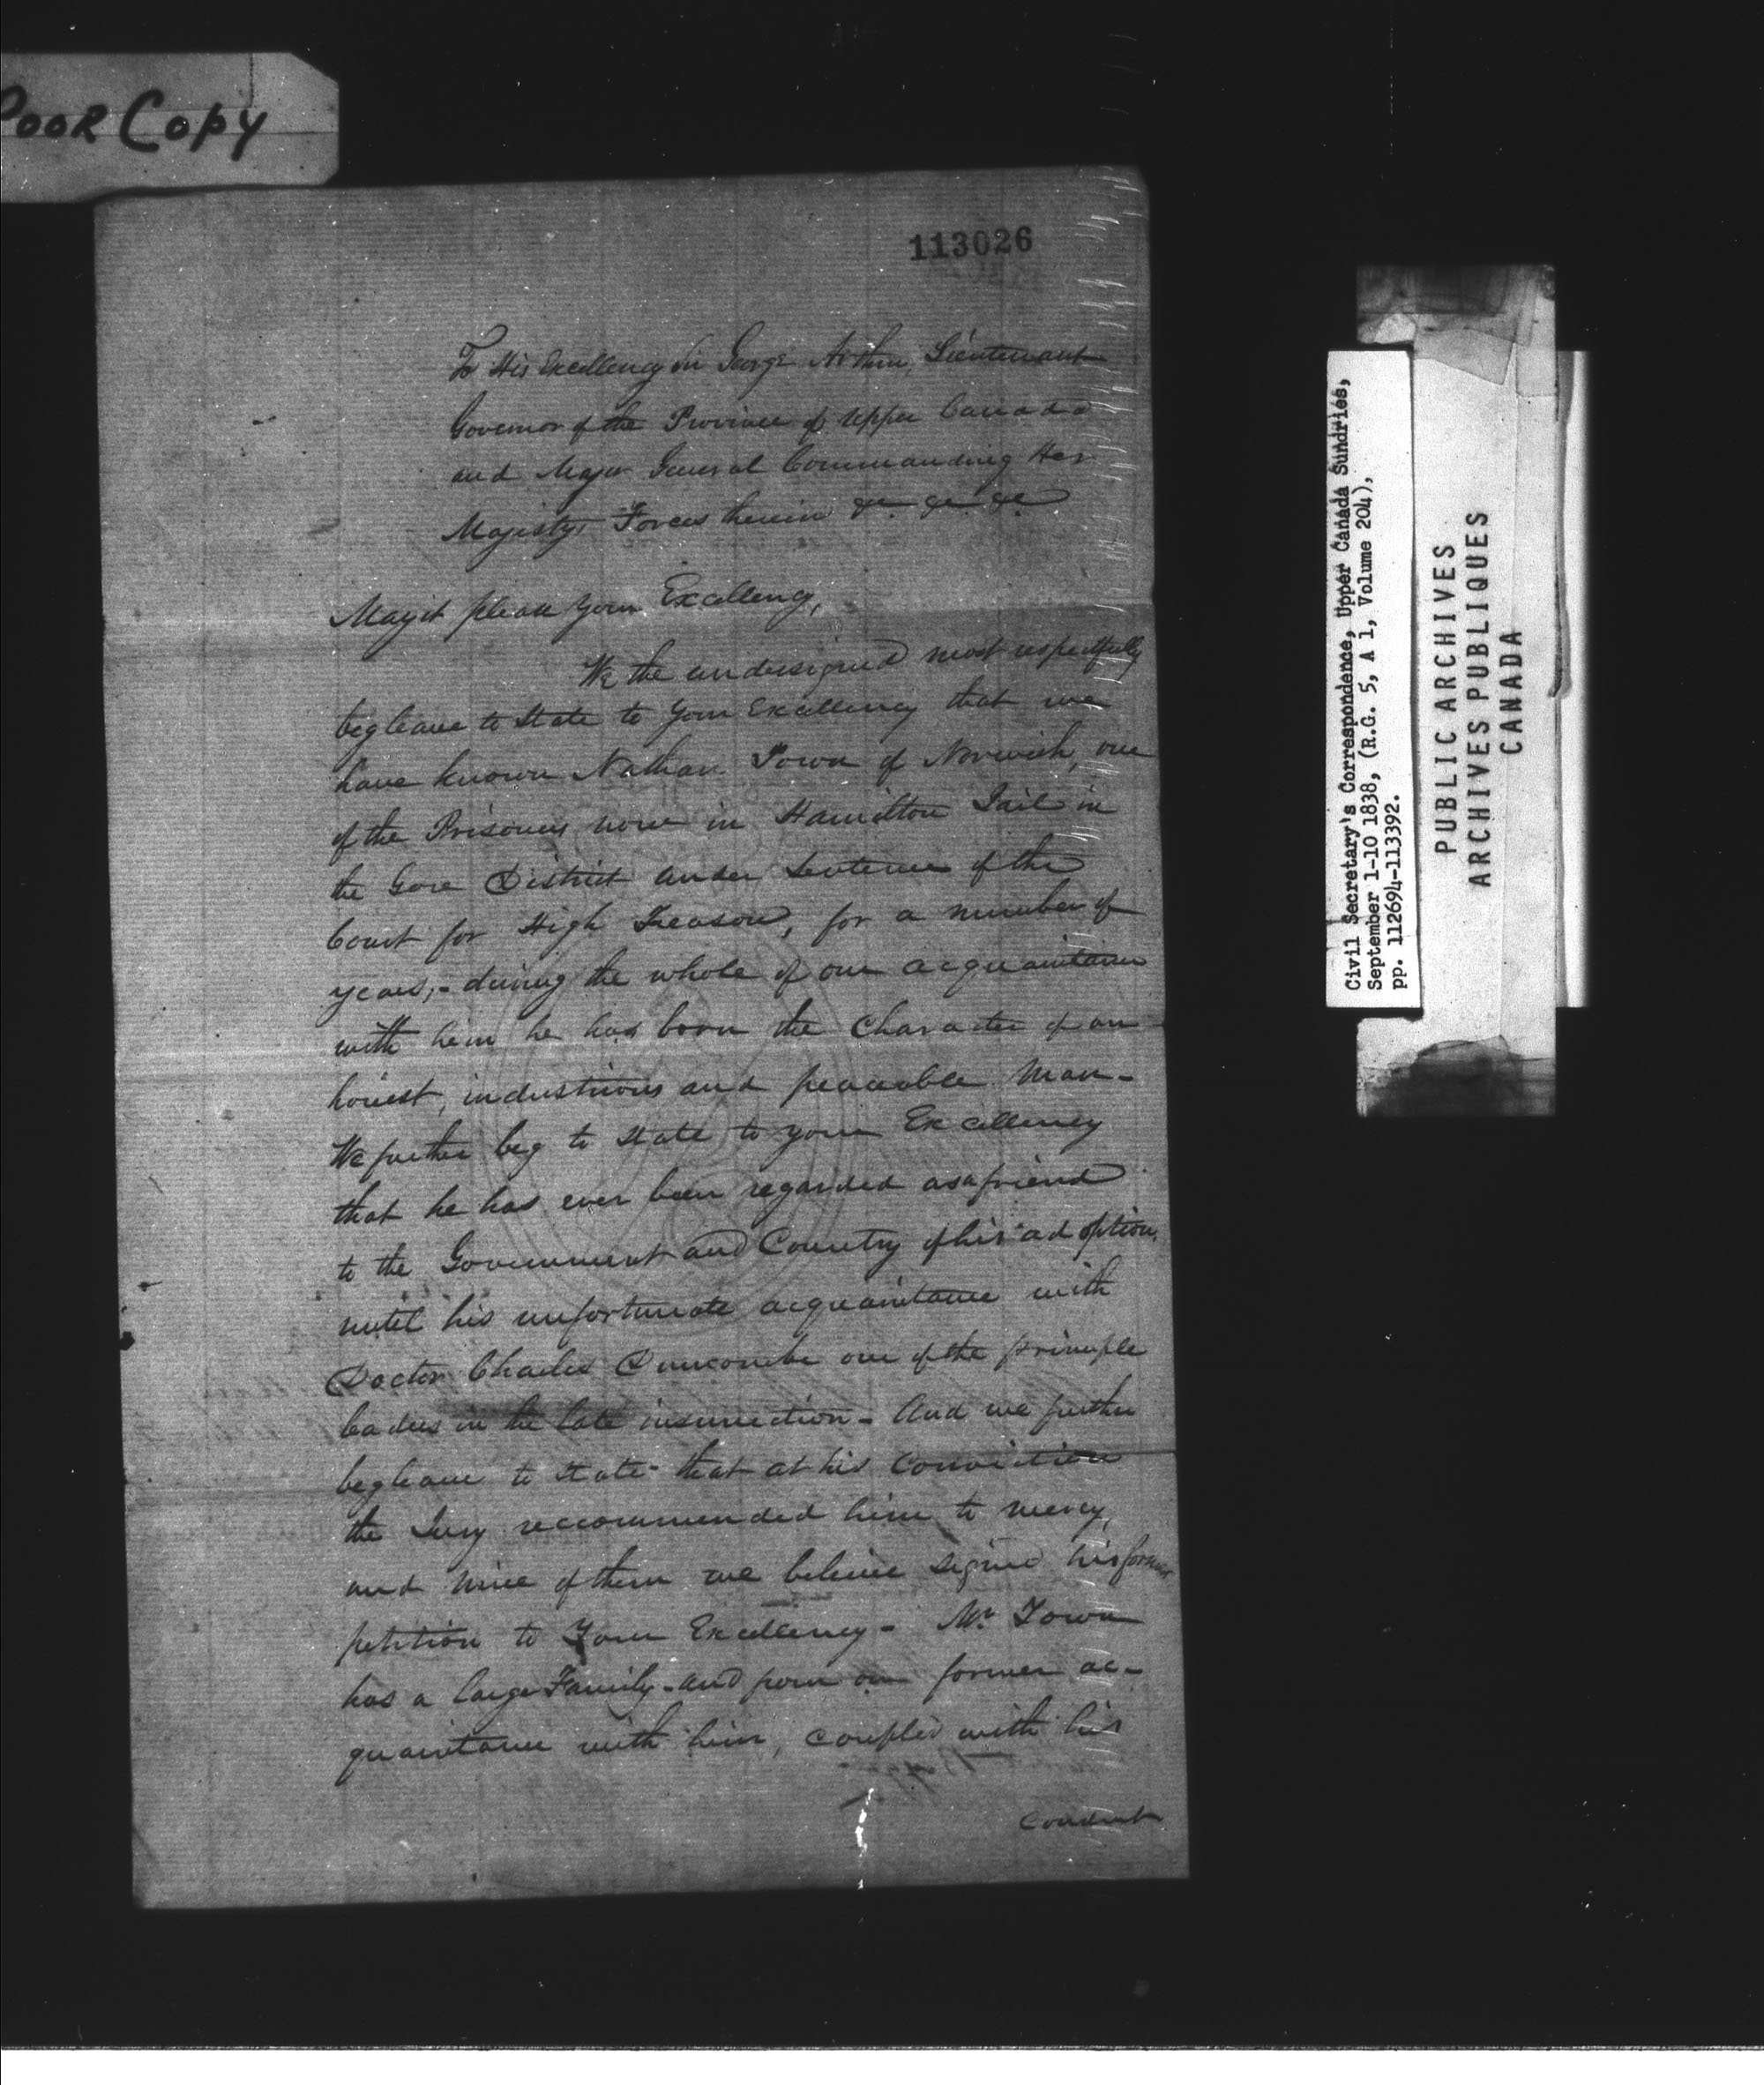 POOR COPY
113026
To His Excellency Sir George Arthur, Lieutenant
Governor of the Province of Upper Canada
and Major General Commanding Her
Majestys Forces herein &c &c &c
May it please Your Excellency,
We the undersigned most respectfully
beg leave to State to Your Excellency that we
have known Nathan Town of Norwich, one
of the Prisoners now in Hamilton Jail in
the Gore District under Sentence of the
Court for High Treason, for a number of
years,- during the whole of our acquaintance
with him he has born the Character of an
honest, industrious and peaceable Man-
We further beg to State to your Excellency
that he has ever been regarded as a friend
to the Government and Country of his adoption,
until his unfortunate acquaintance with
Doctor Charles Duncombe one of the principle
leaders in the late insurrection- And we further
beg leave to state- that at his Conviction
the Jury reccommended him to mercy,
and nine of them we believe signed his former
petition to Your Excellency- Mr Town
has a large Family- and from our former ac-
quaintance with him, coupled with his
conduct
Civil Secretary's Correspondence, Upper Canada Sundries,
September 1-10 1838, (R.G. 5, A 1, Volume 204),
pp. 112694-113392.
PUBLIC ARCHIVES
ARCHIVES PUBLIQUES
CANADA